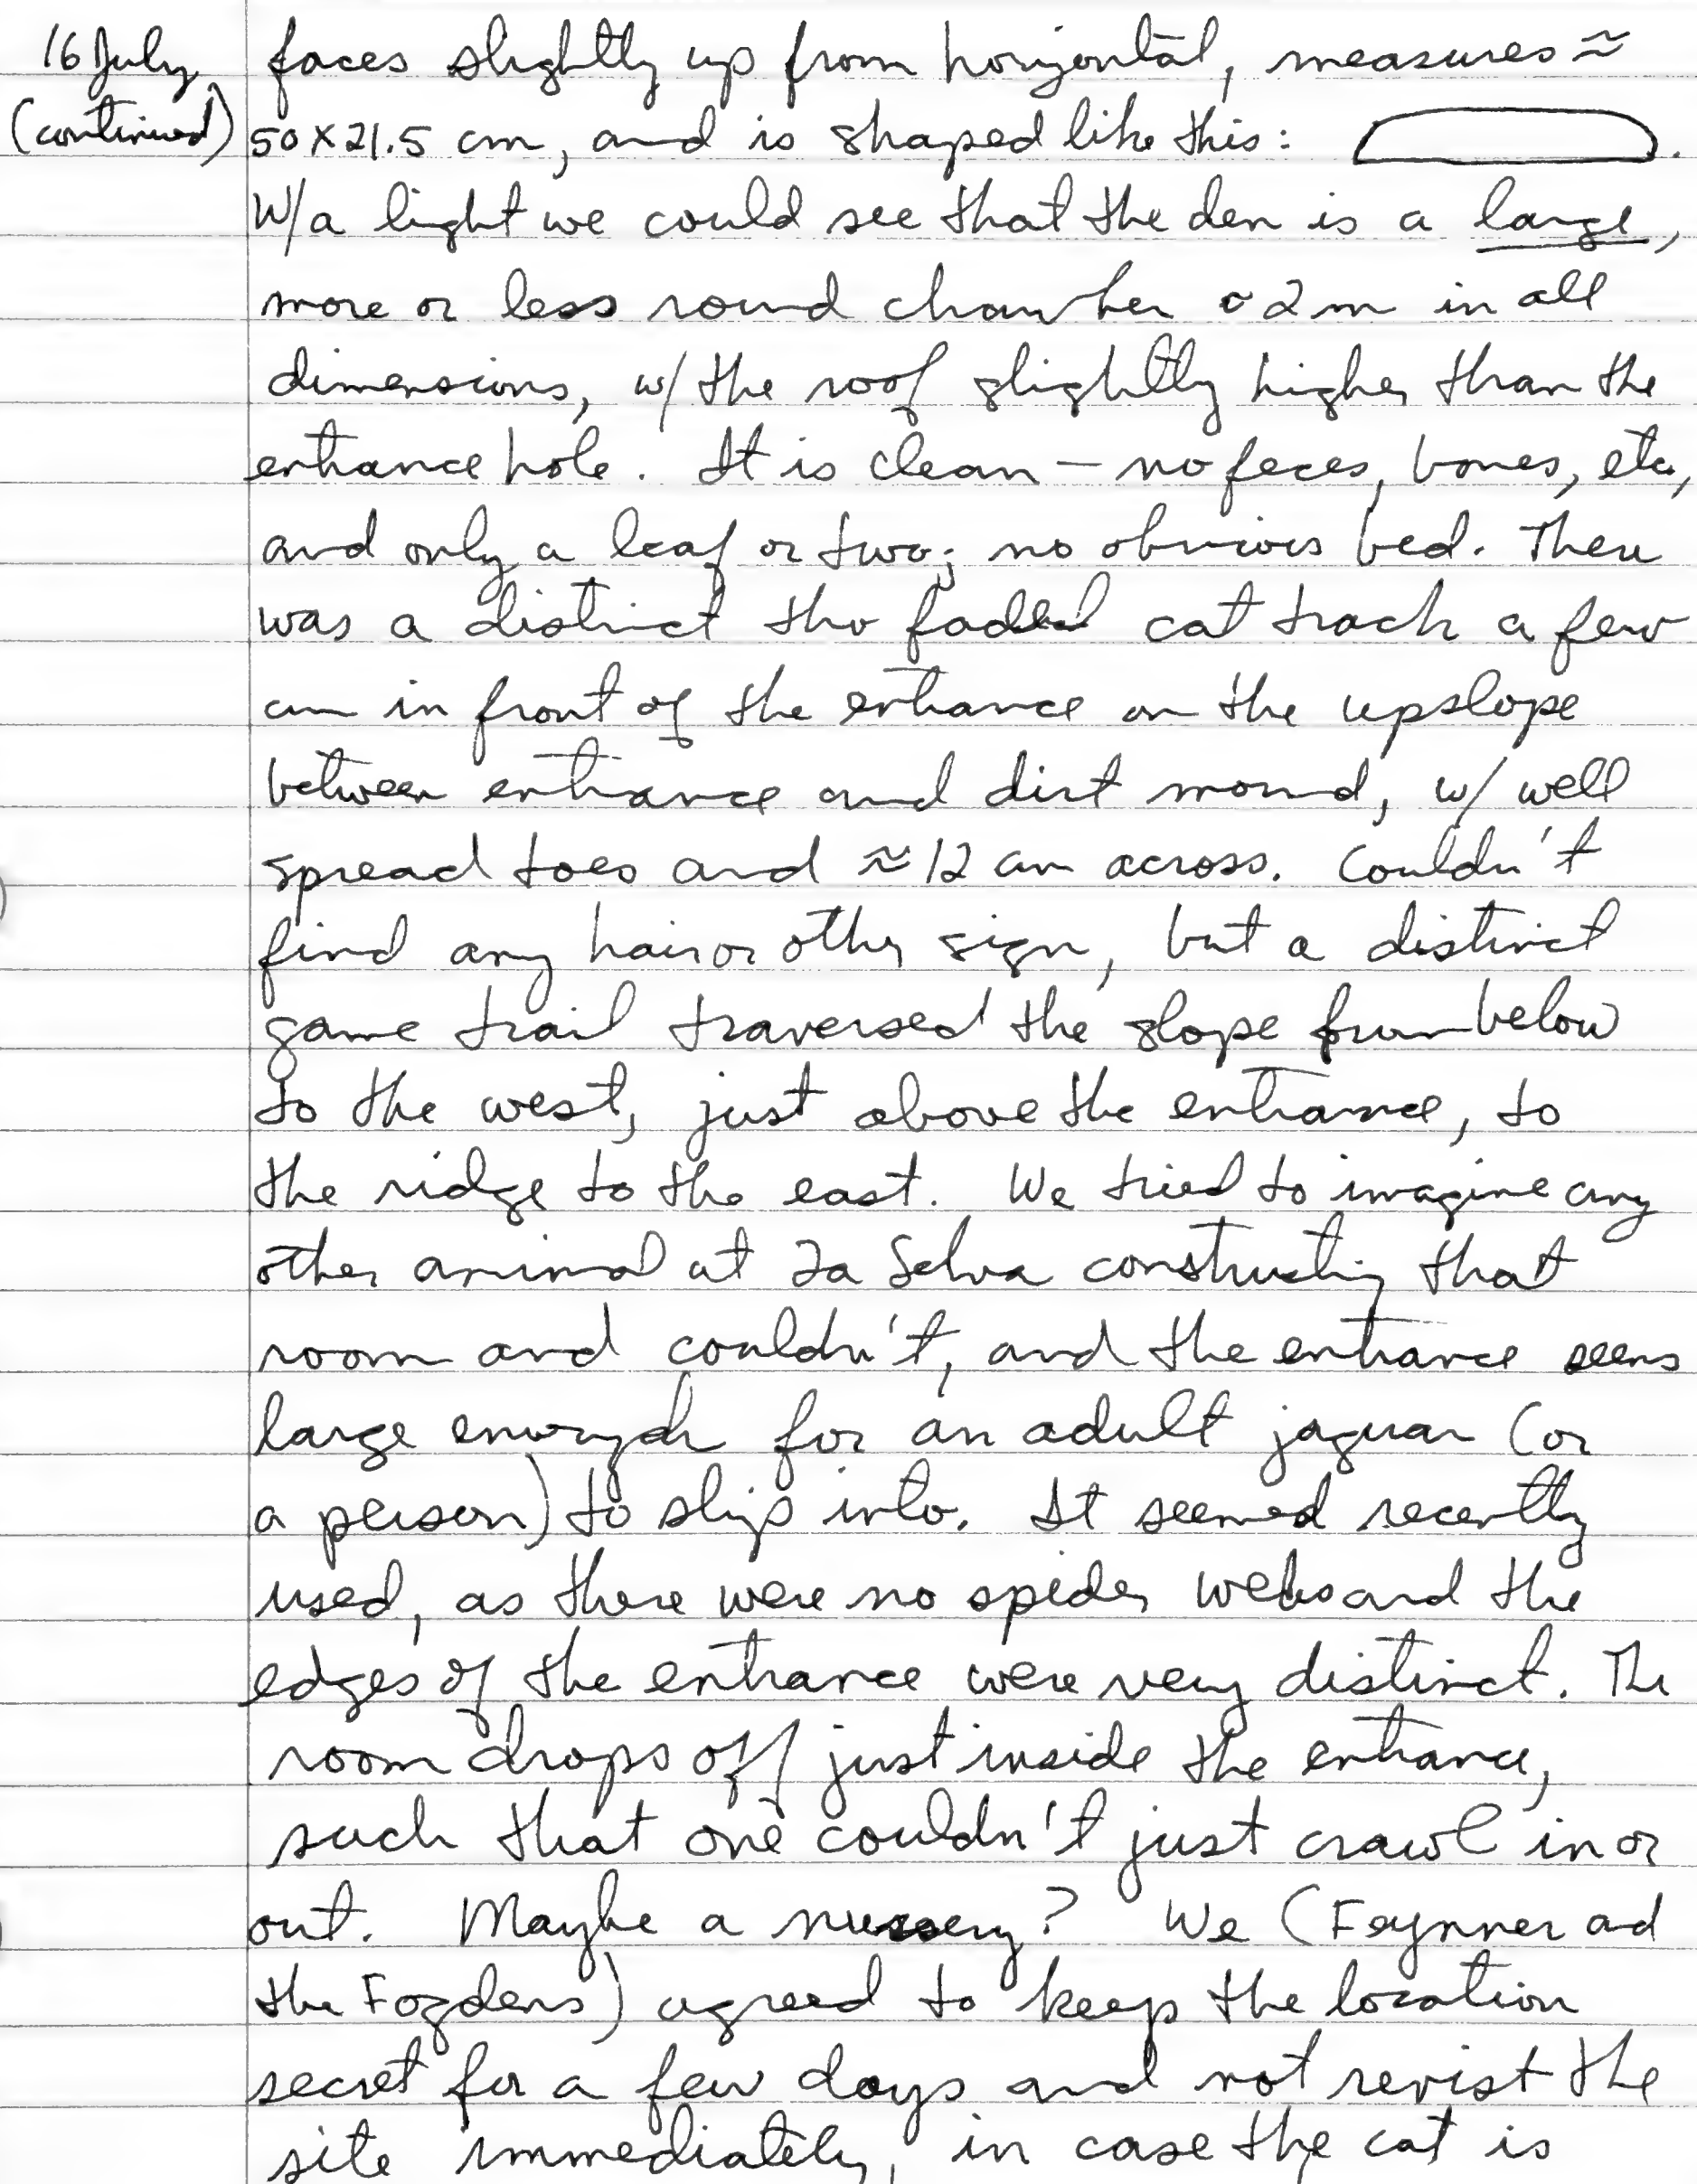 16 July
(continued)
faces slightly up from horizontal, measures ≈
50 x 21.5 cm, and is shaped like this:          .
W/a light we could see that the den is a large,
more or less round chamber 2m in all
dimensions, w/ the roof slightly higher than the
entrance hole. It is clean — no feces, bones, etc,
and only a leaf or two; no obvious bed. There
was a distinct tho faded cat track a few
cm in front of the entrance on the upslope
between entrance and dirt mound, w/ well
spread toes and ≈ 12 cm across. Couldn't
find any hair or other sign, but a distinct
game trail traversed the slope from below
to the west, just above the entrance, to
the ridge to the east. We tried to imagine any
other animal at La Selva constructing that
room and couldn't, and the entrance seems
large enough for an adult jaguar (or
a person) to slip into. It seemed recently
used, as there were no spider webs and the
edges of the entrance were very distinct. The
room drops off just inside the entrance,
such that one couldn't just crawl in or
out. Maybe a nursery? We (Feynner and
the Fogdens) agreed to keep the location
secret for a few days and not revist the
site immediately, in case the cat is